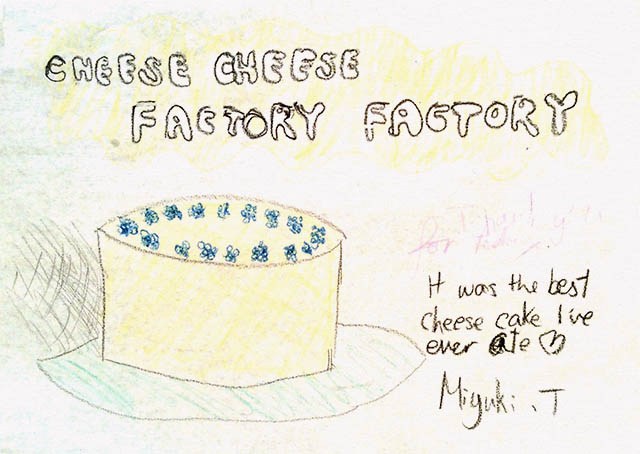 CHEESE CHEESE
FACTORY FACTORY
Thank you
for
It was the best
cheese cake I've
ever ate
Miyuki . T